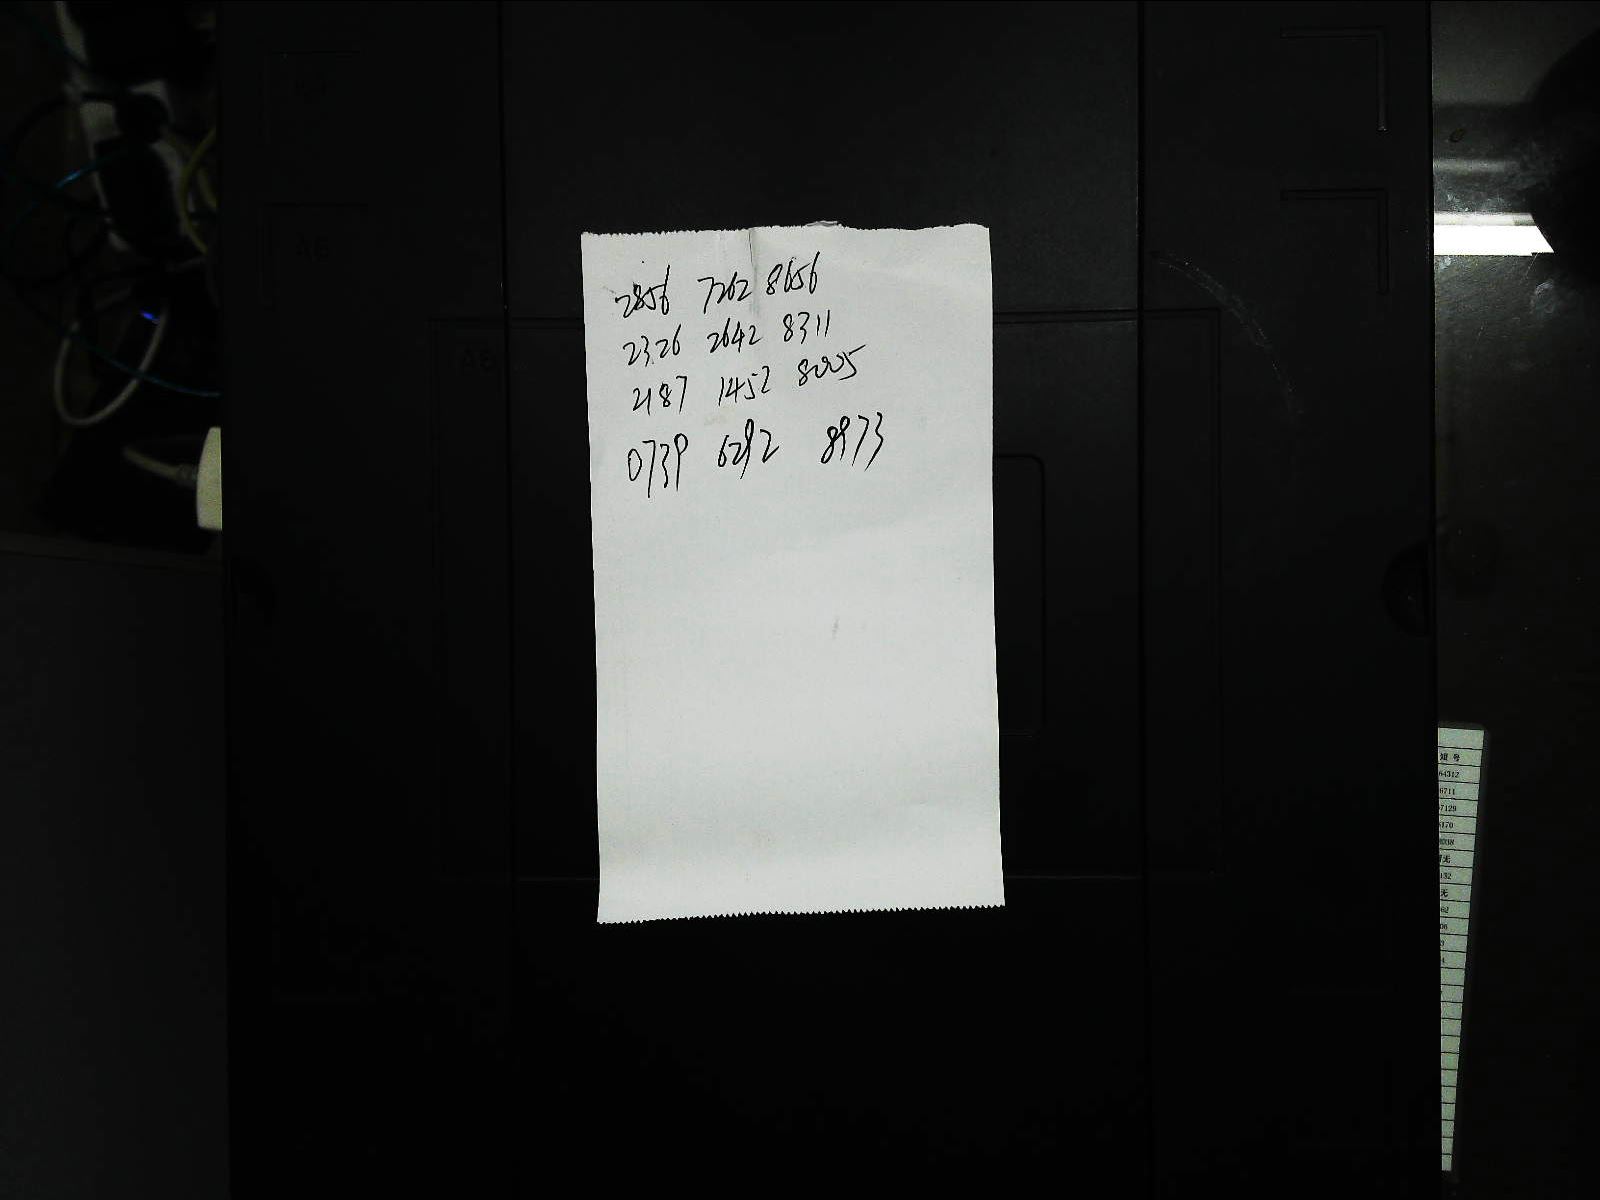 2856 7262 8656
2326 2642 8311
2187 1452 8005
0739 6292 8973
A5
短号
64312
6711
7129
6170
无
132
无
62
06